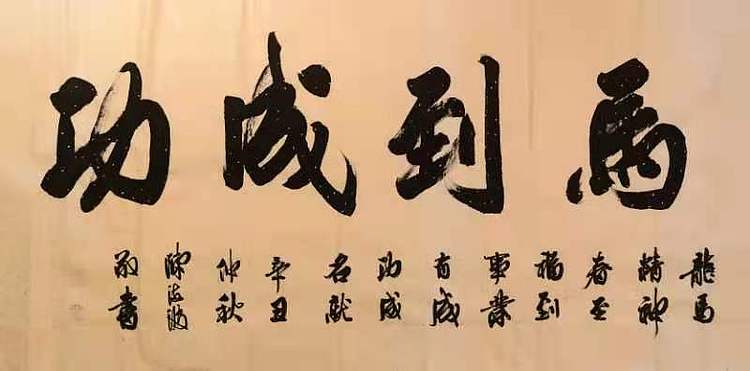 馬到成功
龍馬
精神
春至
福到
事業
有成
功成
名就
辛丑
仲秋
陳海波
敬書